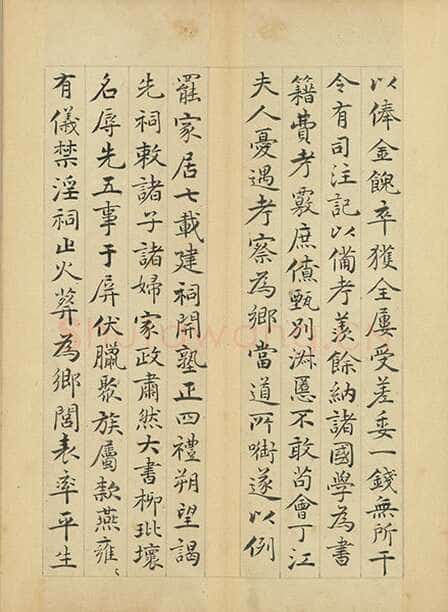 以俸金餽卒獲全屢受差委一錢無所干
令有司注記以備考羨餘納諸國學為書
籍費考覈庶僚甄別淑慝不敢苟會丁江
夫人憂遇考察為鄉當道所銜遂以例
罷家居七載建祠開塾正四禮朔望謁
先祠敕諸子諸婦家政肅然大書柳玭壞
名辱先五事于屏伏臘聚族屬款燕雍〻
有儀禁淫祠止火葬為鄉閭表率平生